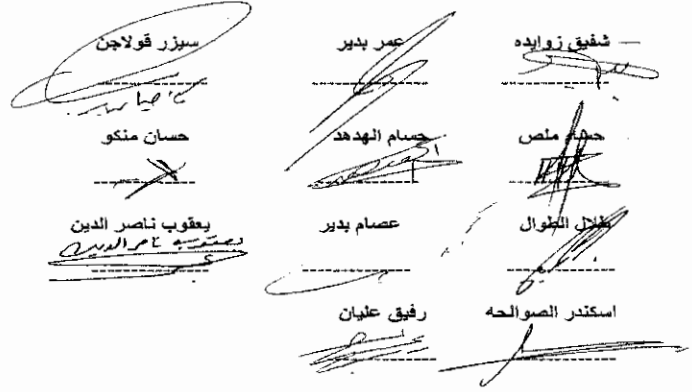 شفيق زوايده عمر بدير سيزر قولاجن
حسام ملص حسام الهدهد حسان منكو
طلال الطوال عصام بدير يعقوب ناصر الدين
يعقوب ناصر الدين
اسكندر الصوالحه رفيق عليان